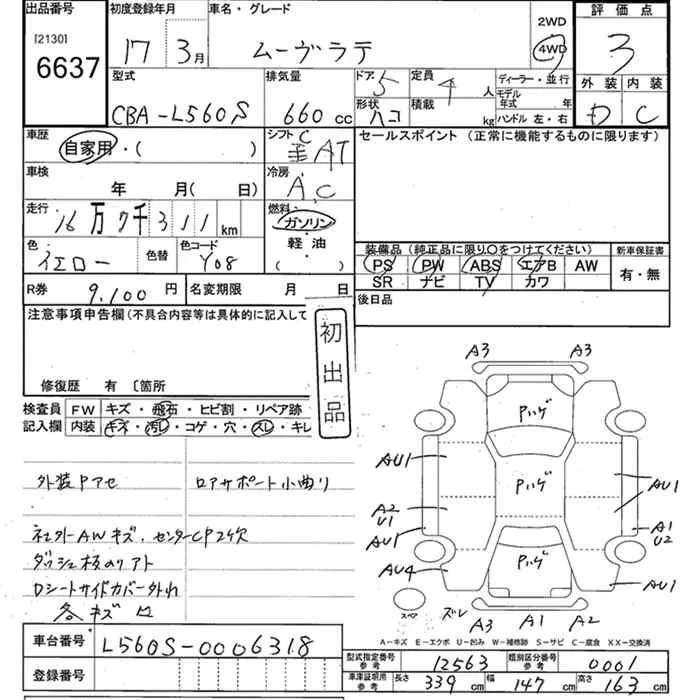 出品番号
[2130]
6637
初度登録年月
17 3月
車名・グレード
ムーヴラテ
2WD
4WD
評価点
3
外装 内装
D C
型式
CBA-L560S
排気量
660 cc
ドア 5
定員 4 人
ディーラー・並行
モデル年式 年
形状 ハコ
積載 kg
ハンドル 左・右
車歴
自家用・( )
シフト C
AT
セールスポイント (正常に機能するものに限ります)
車検
年 月(日 )
冷房
A.C
走行
16万7千311 km
燃料
ガソリン
軽油
( )
色
イエロー
色替
色コード
Y08
装備品 (純正品に限り○をつけてください)
PS PW ABS エアB AW
SR ナビ TV カワ
新車保証書
有・無
R券 9,100 円
名変期限 月 日
後日品
注意事項申告欄(不具合内容等は具体的に記入して
初出品
修復歴 有 〔箇所
検査員記入欄
FW キズ・飛石・ヒビ割・リペア跡
内装 キズ・汚レ・コゲ・穴・スレ・キレ
外装Pアセ
ロアサポート小曲り
社外AWキズ.センターCP2ケ欠
ダッシュ板のリアト
Dシートサイドカバー外れ
各キズ
A3 A3
Pハゲ
AU1
Pハゲ
AU1
A2
U1
A1
U2
AU1
Pハゲ
AU4
AU1
スペア
ズレ
A3 A1 A2
A-キズ E-エクボ U-凹み W-補修跡 S-サビ C-腐食 XX-交換済
車台番号
L560S-0006318
登録番号
型式指定番号 参考
12563
類別区分番号 参考
0001
車庫証明用 参考
長さ 339 cm
幅 147 cm
高さ 163 cm